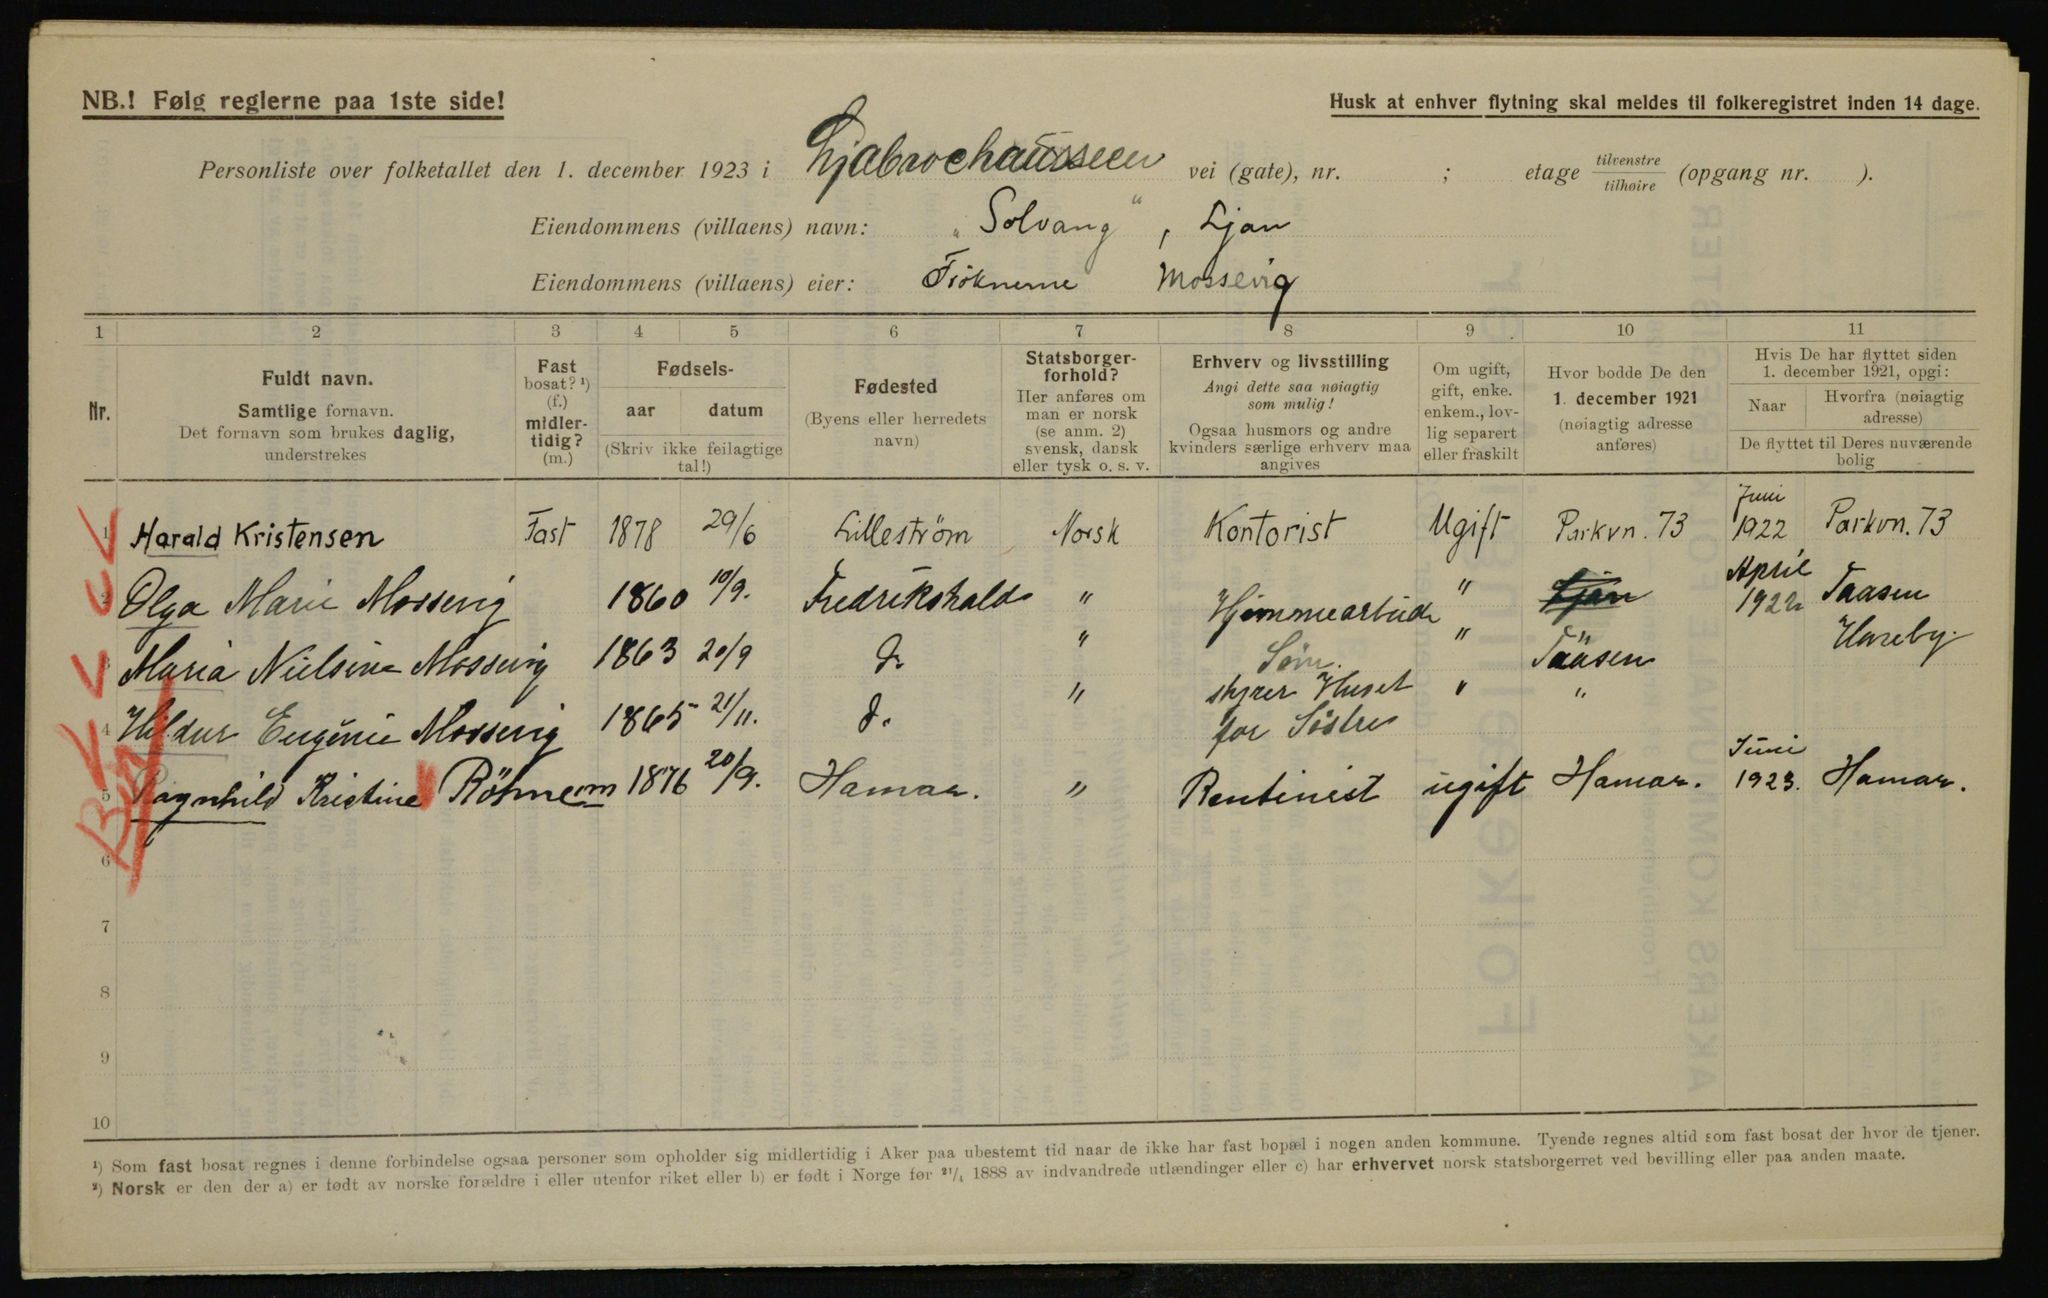 NB.! Følg reglerne paa 1ste side!
Husk at enhver flytning skal meldes til folkeregistret inden 14 dage.
Personliste over folketallet den 1. december 1923 i Ljabrochausseen vei (gate), nr. ; etage tilvenstre tilhøire (opgang nr. ).
Eiendommens (villaens) navn: „Solvang", Ljan
Eiendommens (villaens) eier: Frøknerne Mossevig
1 2 3 4 5 6 7 8 9 10 11
Nr.
Fuldt navn.
Samtlige fornavn.
Det fornavn som brukes daglig,
understrekes
Fast
bosat? ¹)
(f.)
midler-
tidig?
(m.)
Fødsels-
aar datum
(Skriv ikke feilagtige
tal!)
Fødested
(Byens eller herredets
navn)
Statsborger-
forhold?
Her anføres om
man er norsk
(se anm. 2)
svensk, dansk
eller tysk o. s. v.
Erhverv og livsstilling
Angi dette saa nøiagtig
som mulig!
Ogsaa husmors og andre
kvinders særlige erhverv maa
angives
Om ugift,
gift, enke.
enkem., lov-
lig separert
eller fraskilt
Hvor bodde De den
1. december 1921
(nøiagtig adresse
anføres)
Hvis De har flyttet siden
1. december 1921, opgi:
Naar
Hvorfra (nøiagtig
adresse)
De flyttet til Deres nuværende
bolig
1 Harald Kristensen Fast 1878 29/6 Lilleström Norsk Kontorist Ugift Parkvn. 73 Juni 1922 Parkvn. 73
2 Olga Marie Mossevig 1860 10/9. Fredrikshald " Hjemmearbeide " Ljan April 1922 Taasen Haveby.
3 Maria Nielsine Mossevig 1863 20/9 do " Søm. " Taasen
4 Hildur Eugenie Mossevig 1865 21/11. do " styrer Huset for Søstre " "
5 Ragnhild Kristine Röhnem 1876 20/9. Hamar. " Rentinist ugift Hamar. Juni 1923. Hamar.
6
7
8
9
10
¹) Som fast bosat regnes i denne forbindelse ogsaa personer som opholder sig midlertidig i Aker paa ubestemt tid naar de ikke har fast bopæl i nogen anden kommune. Tyende regnes altid som fast bosat der hvor de tjener.
²) Norsk er den der a) er født av norske forældre i eller utenfor riket eller b) er født i Norge før 21/4 1888 av indvandrede utlændinger eller c) har erhvervet norsk statsborgerret ved bevilling eller paa anden maate.